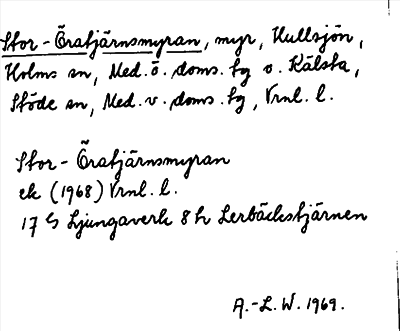 Stor-Öratjärnsmyran, myr, Hullsjön,
Holms sn, Med. ö. doms. tg o. Kälsta,
Stöde sn, Med. v. doms. tg, Vrnl. l.
Stor-Öratjärnsmyran
ek (1968) Vrnl. l.
17 G Ljungaverk 8 h Lerbäckstjärnen
A.-L. W. 1969.